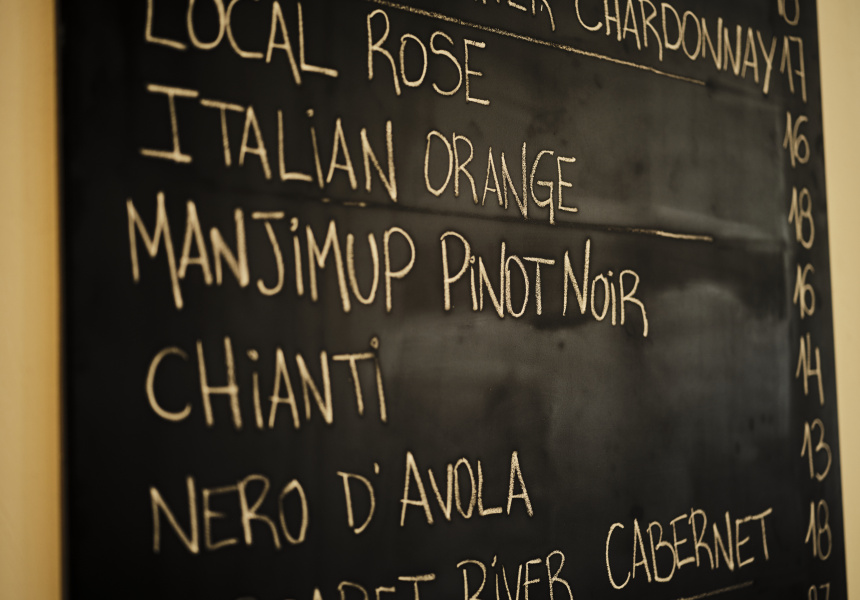 CHARDONNAY 17
LOCAL ROSE 16
ITALIAN ORANGE 18
MANJIMUP PINOT NOIR 16
CHIANTI 14
NERO D'AVOLA 13
RIVER CABERNET 18